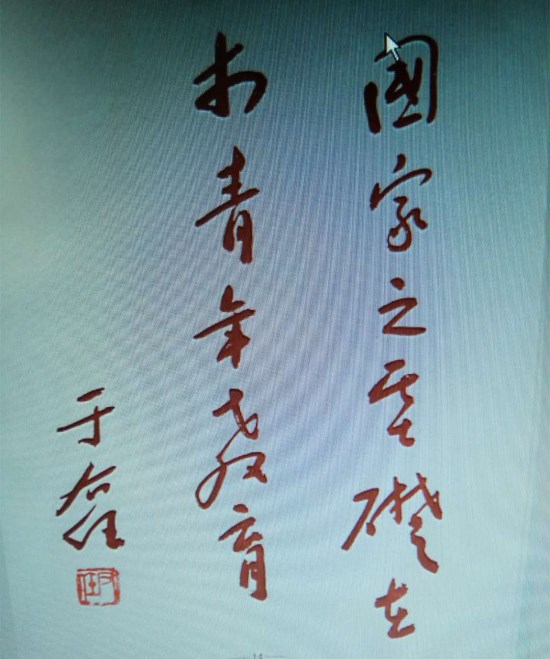 國家之基礎在
於青年教育
于右任